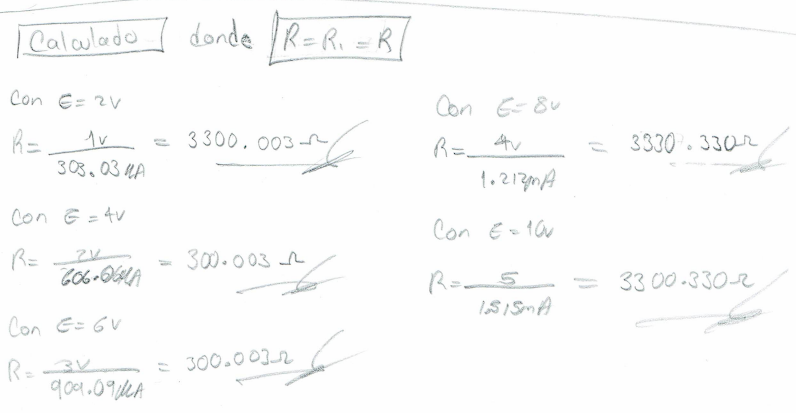 Calculado donde R = R₁ = R
Con E = 2v
R = 1v / 303.03 µA = 3300.003 Ω
Con E = 4v
R = 2v / 606.06 µA = 300.003 Ω
Con E = 6v
R = 3v / 909.09 µA = 300.003 Ω
Con E = 8v
R = 4v / 1.212mA = 3330.330Ω
Con E = 10v
R = 5 / 1.515mA = 3300.330Ω